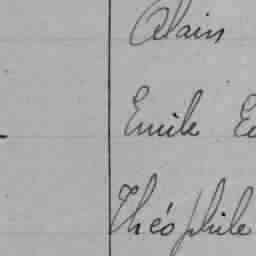 Alain
Emile
Théophile